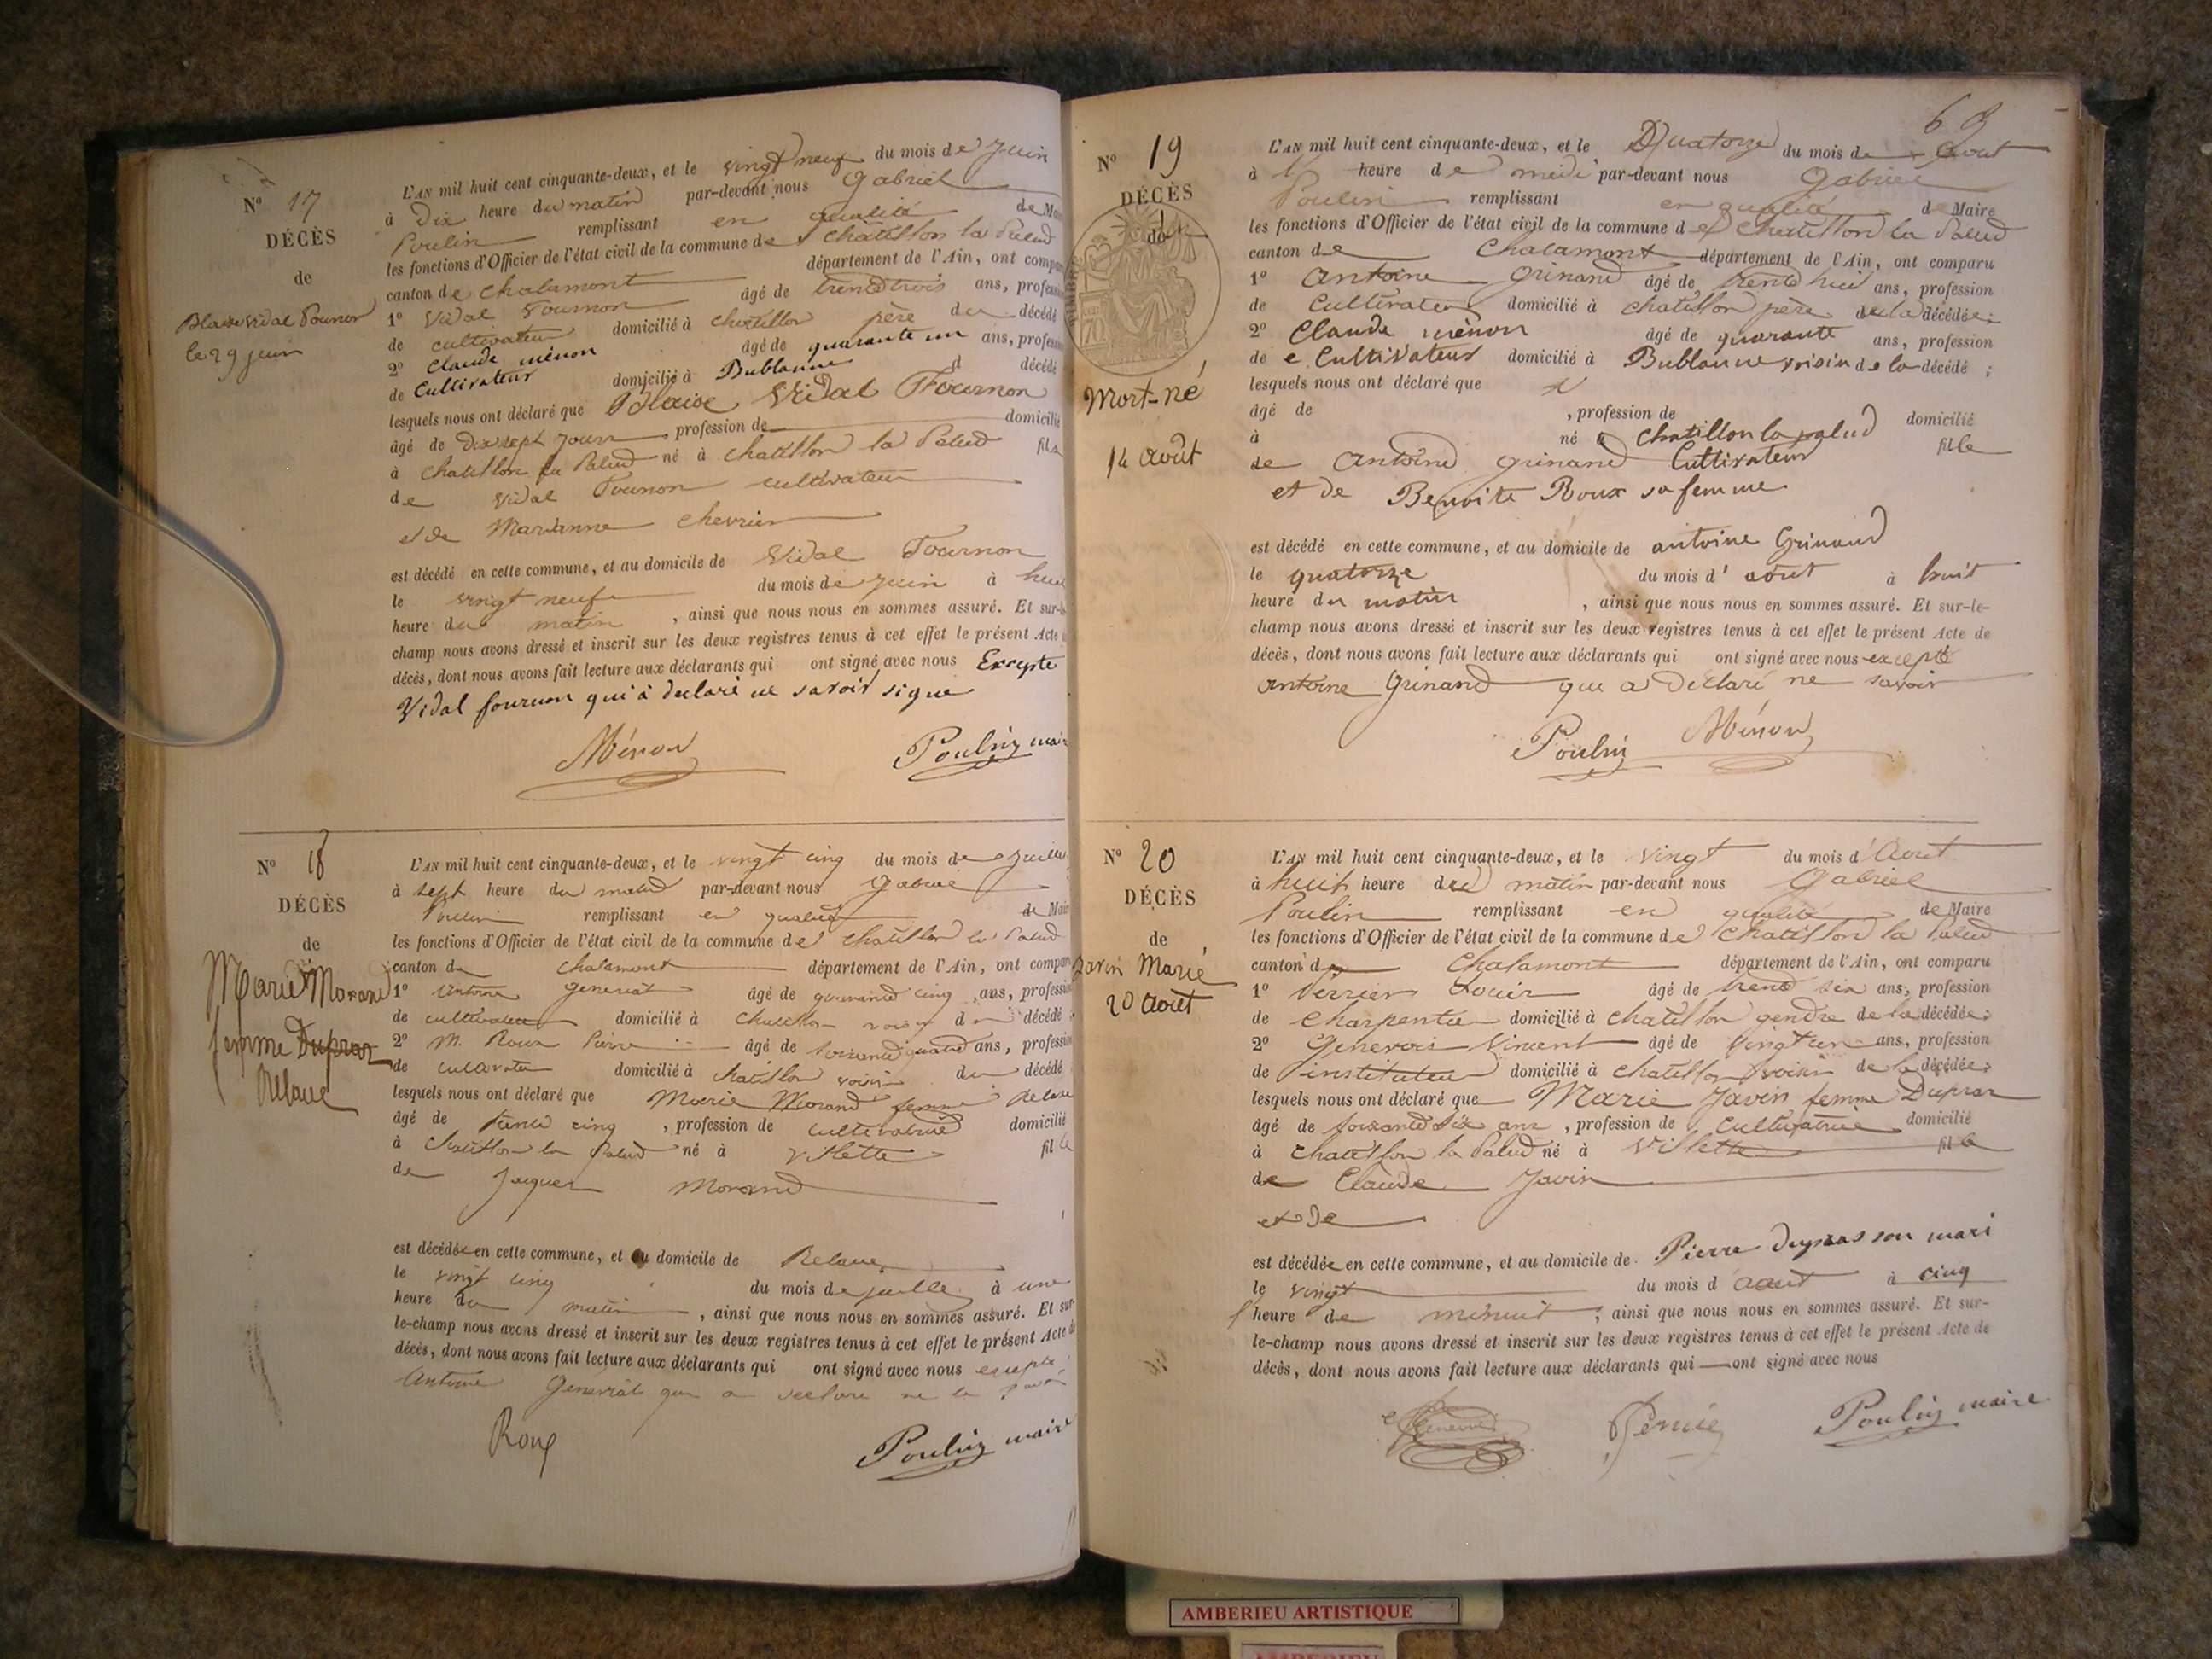 N° 17
DÉCÈS
de
Blaise Vidal Fournon
le 29 juin
L'AN mil huit cent cinquante-deux, et le vingt neuf du mois de Juin
à Dix heure du matin par-devant nous Gabriel
Poulin remplissant en qualité de Mai
les fonctions d'Officier de l'état civil de la commune de Chatillon la Palud
canton de Chalamont département de l'Ain, ont compa
1° Vidal Fournon âgé de trente trois ans, profess
de cultivateur domicilié à Chatillon père du décédé
2° Claude Ménon âgé de quarante un ans, profess
de Cultivateur domicilié à Bublanne décédé
lesquels nous ont déclaré que Blaise Vidal Fournon
âgé de dix sept jours, profession de domicilié
à Chatillon la Palud né à Chatillon la Palud fils
de Vidal Fournon cultivateur
et de Marianne Chevrier
est décédé en cette commune, et au domicile de Vidal Fournon
le vingt neuf du mois de Juin à huit
heure du matin, ainsi que nous nous en sommes assuré. Et sur-le-
champ nous avons dressé et inscrit sur les deux registres tenus à cet effet le présent Acte
décès, dont nous avons fait lecture aux déclarants qui ont signé avec nous Excepte
Vidal fournon qui à declaré ne savoir signé
Ménon Poulin maire
N° 18
DÉCÈS
de
Marie Morand
femme Dupraz
Relave
L'AN mil huit cent cinquante-deux, et le vingt cinq du mois de Juillet
à sept heure du matin par-devant nous Gabriel
Poulin remplissant en qualité de Mair
les fonctions d'Officier de l'état civil de la commune de Chatillon la Palud
canton de Chalamont département de l'Ain, ont compar
1° Antoine Generiat âgé de quarante cinq ans, profession
de cultivateur domicilié à Chatillon voisin du décédé
2° M. Roux Pierre âgé de soixante quatre ans, profession
de cultivateur domicilié à Chatillon voisin du décédé
lesquels nous ont déclaré que Marie Morand femme Relave
âgé de trente cinq, profession de cultivatrice domicilié
à Chatillon la Palud né à Villette fille
de Jacques Morand
est décédée en cette commune, et au domicile de Relave
le vingt cinq du mois de juillet à une
heure du matin, ainsi que nous nous en sommes assuré. Et sur-
le-champ nous avons dressé et inscrit sur les deux registres tenus à cet effet le présent Acte de
décès, dont nous avons fait lecture aux déclarants qui ont signé avec nous excepté
Antoine Generiat qui a declare ne le savoir
Roux Poulin maire
69
N° 19
DÉCÈS
do
Mort-né
14 août
L'AN mil huit cent cinquante-deux, et le Quatorze du mois de Aout
à heure de midi par-devant nous Gabriel
Poulin remplissant en qualité de Maire
les fonctions d'Officier de l'état civil de la commune de Chatillon la Palud
canton de Chalamont département de l'Ain, ont comparu
1° Antoine Grinand âgé de trente huit ans, profession
de Cultivateur domicilié à Chatillon père de la décédée;
2° Claude Ménon âgé de quarante ans, profession
de Cultivateur domicilié à Bublanne voisin de la décédé;
lesquels nous ont déclaré que
âgé de, profession de domicilié
à né à Chatillon la palud
de Antoine Grinand Cultivateur fille
et de Benoite Roux sa femme
est décédé en cette commune, et au domicile de antoine Grinand
le quatorze du mois d'août à huit
heure du matin, ainsi que nous nous en sommes assuré. Et sur-le-
champ nous avons dressé et inscrit sur les deux registres tenus à cet effet le présent Acte de
décès, dont nous avons fait lecture aux déclarants qui ont signé avec nous excepté
Antoine Grinand qui a déclaré ne savoir
Poulin Ménon
N° 20
DÉCÈS
de
Javin Marie
20 août
L'AN mil huit cent cinquante-deux, et le vingt du mois d'Aout
à huit heure du matin par-devant nous Gabriel
Poulin remplissant en qualité de Maire
les fonctions d'Officier de l'état civil de la commune de Chatillon la Palud
canton de Chalamont département de l'Ain, ont comparu
1° Louis âgé de trente six ans, profession
de Charpentier domicilié à Chatillon gendre de la décédée;
2° Genevois Vincent âgé de vingt un ans, profession
de instituteur domicilié à Chatillon voisin de la décédée;
lesquels nous ont déclaré que Marie Javin femme Dupraz
âgé de soixante six ans, profession de Cultivatrice domicilié
à Chatillon la Palud né à Villette fille
de Claude Javin
et de
est décédée en cette commune, et au domicile de Pierre dupras son mari
le vingt du mois d'aout à cinq
heure de minuit, ainsi que nous nous en sommes assuré. Et sur-
le-champ nous avons dressé et inscrit sur les deux registres tenus à cet effet le présent Acte de
décès, dont nous avons fait lecture aux déclarants qui ont signé avec nous
Genevois Poulin maire
AMBERIEU ARTISTIQUE
AMBERIEU